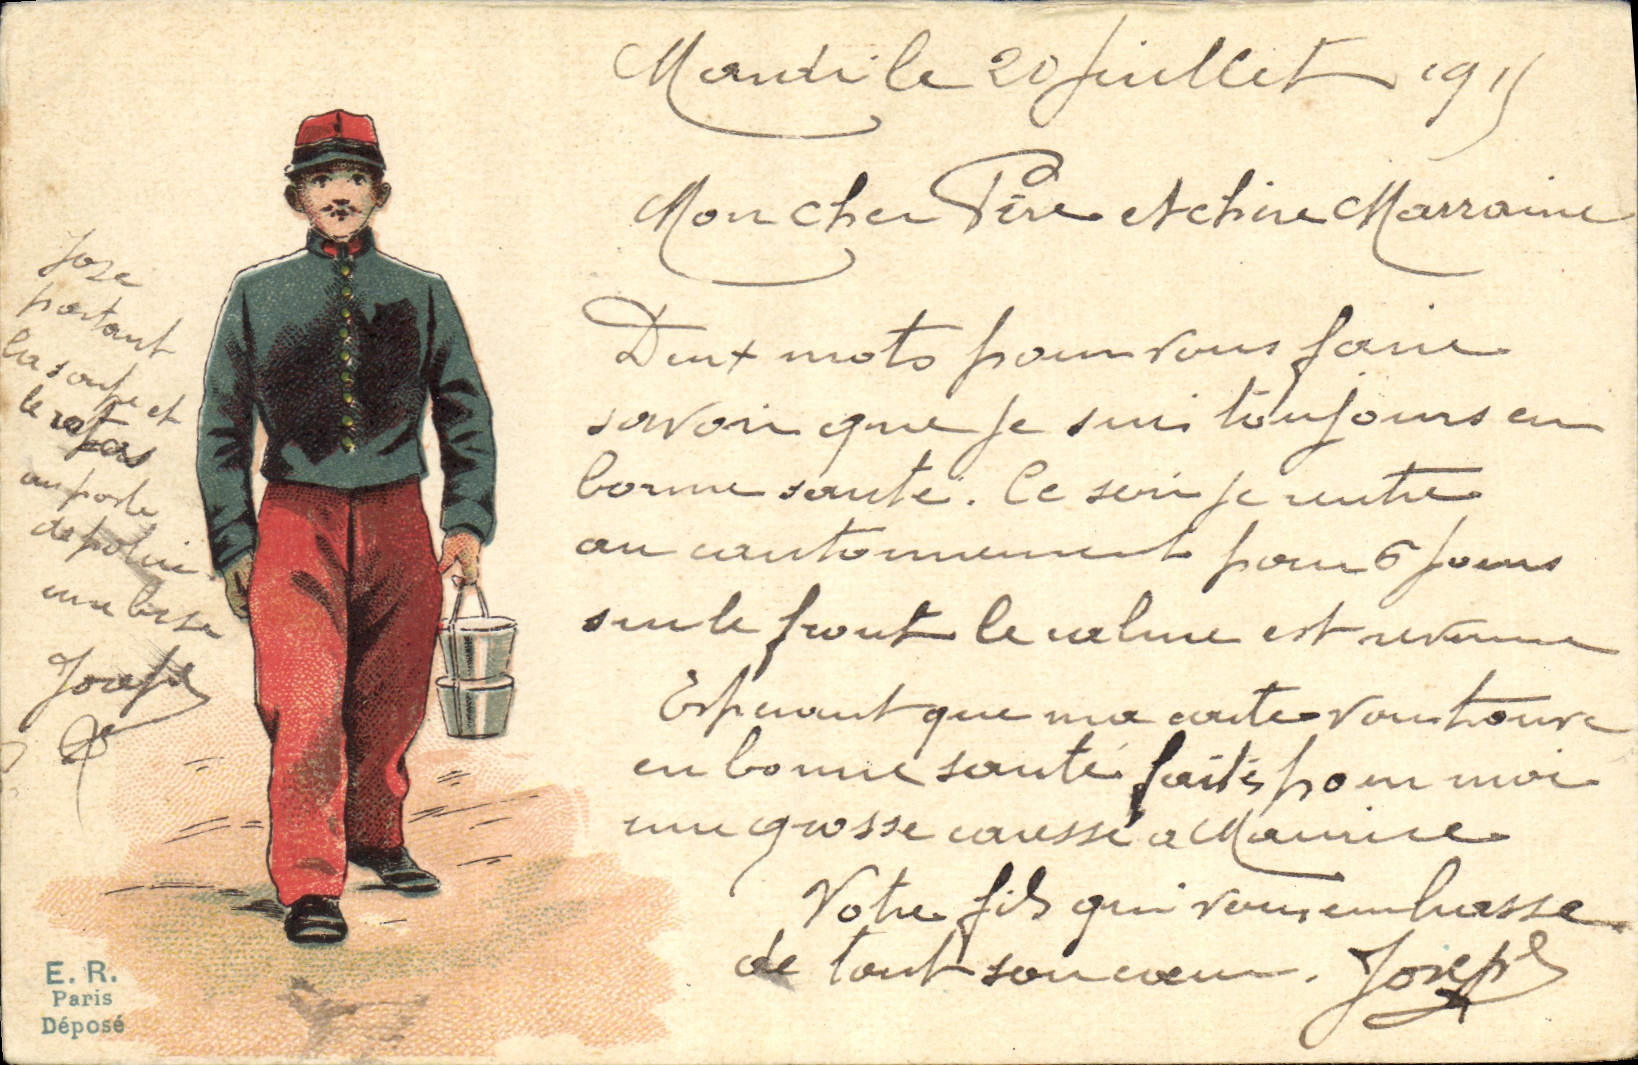 Mardi le 20 Juillet 1915
Mon cher Père et chère Marraine
Deux mots pour vous faire
savoir que je suis toujours en
bonne santé. Ce soir je rentre
au cantonnement pour 6 jours
sur le front le calme est revenu
Esperant que ma carte vous trouve
en bonne santé faites pour moi
une grosse caresse a Maurice
Votre fils qui vous embrasse
de tout son cœur. Joseph
Joze
portant
la soupe et
le
au poste
de police
une bise
Joseph
E. R.
Paris
Déposé